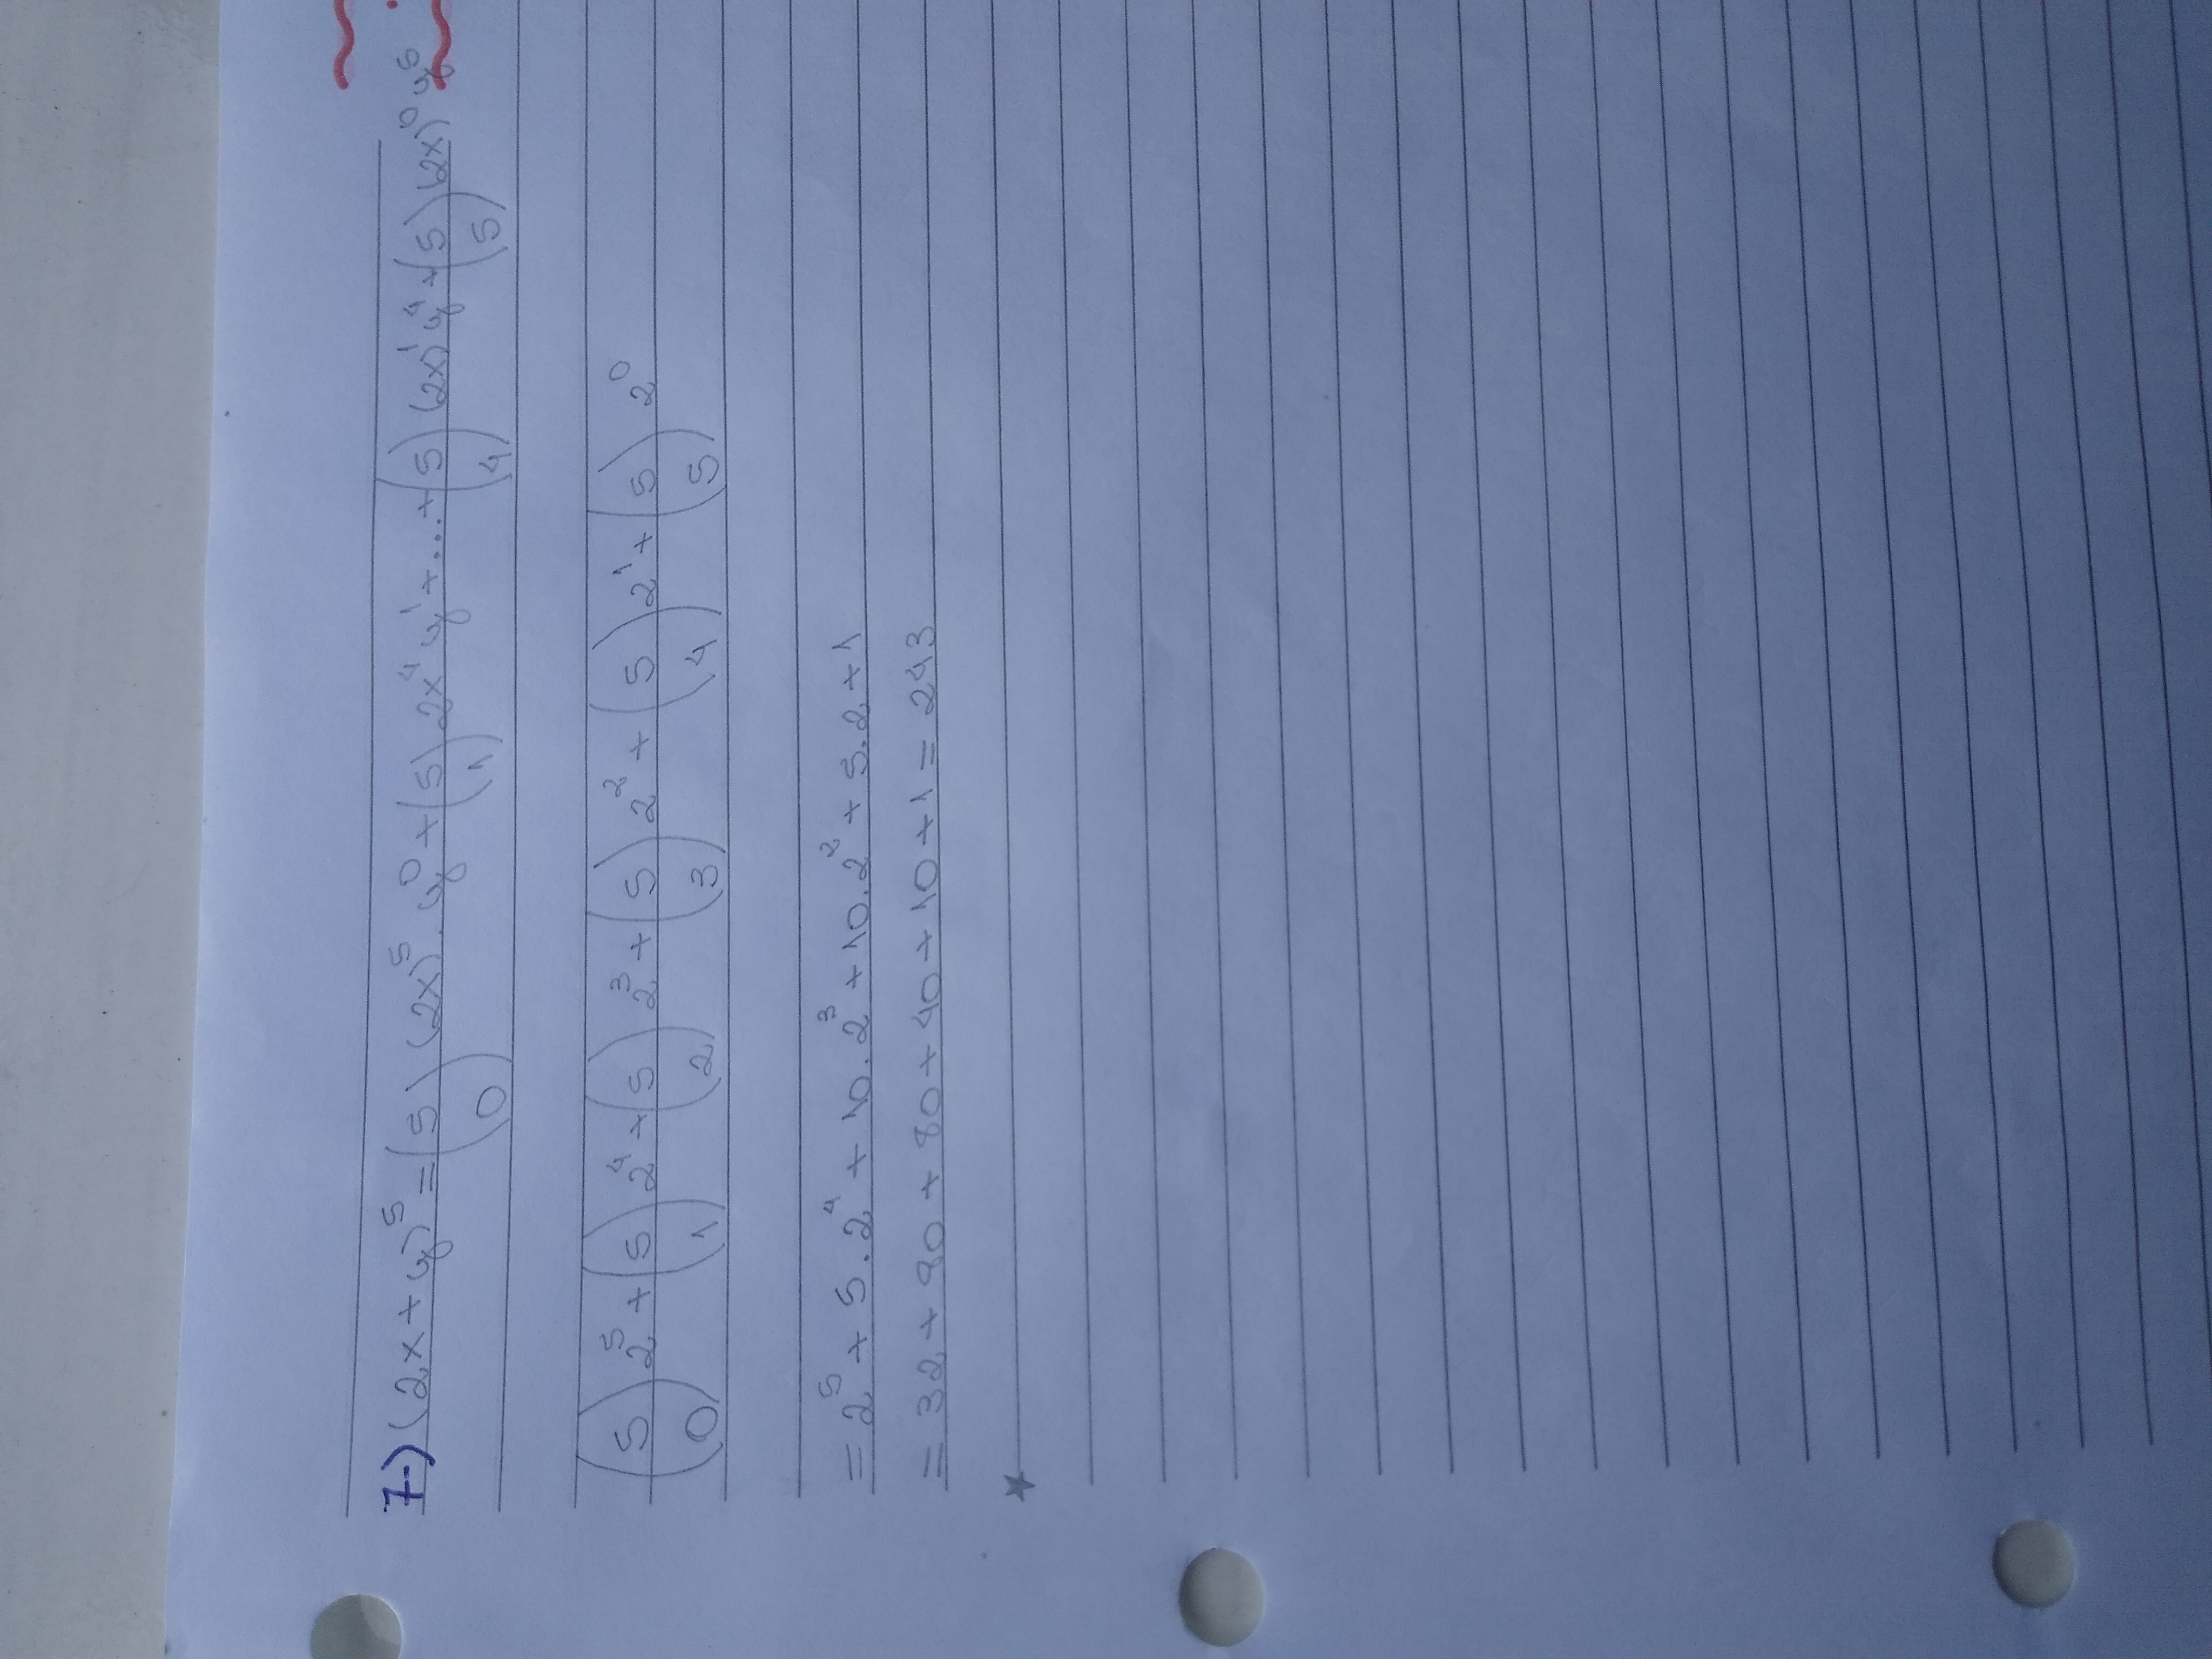 7-) (2x+y)⁵ = (5 0) (2x)⁵. y⁰ + (5 1) 2x⁴ y¹ + ... + (5 4) (2x)¹ y⁴ + (5 5) (2x)⁰ y⁵
(5 0) 2⁵ + (5 1) 2⁴ + (5 2) 2³ + (5 3) 2² + (5 4) 2¹ + (5 5) 2⁰
= 2⁵ + 5.2⁴ + 10.2³ + 10.2² + 5.2 + 1
= 32 + 80 + 80 + 40 + 10 + 1 = 243